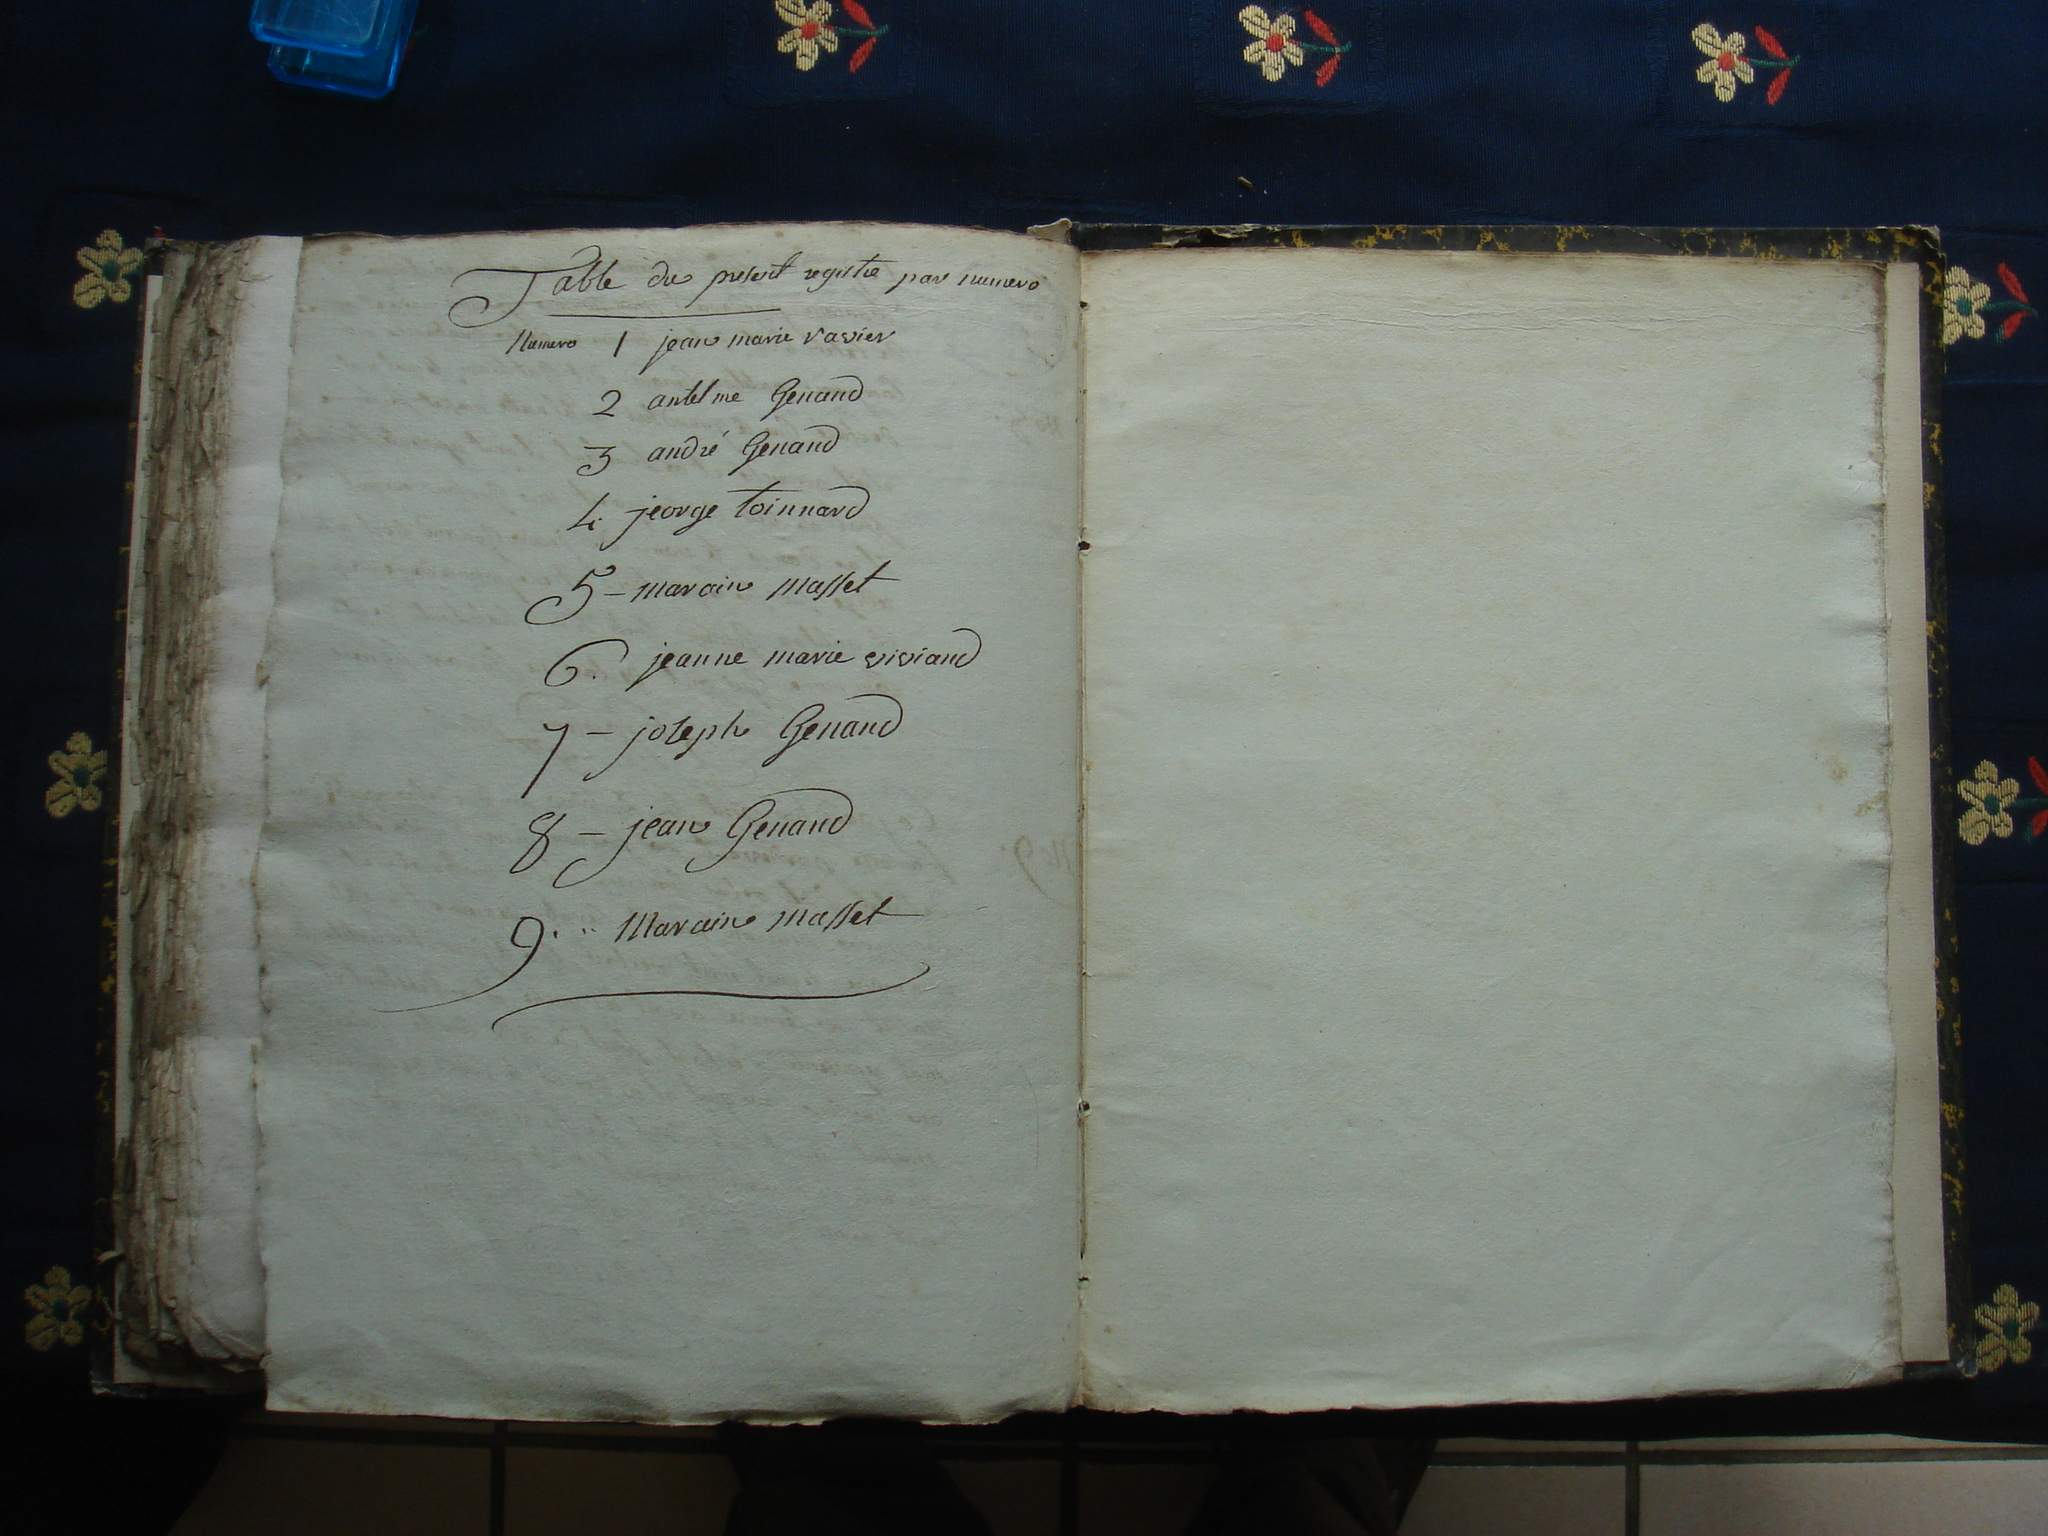 Table du present registre par numero
Numero 1 jean marie ravier
2 antelme Genand
3 andré Genand
4. jeorge toinnard
5 - marain masset
6. jeanne marie viviand
7 - joseph Genand
8 - jean Genand
9. .. Marain masset